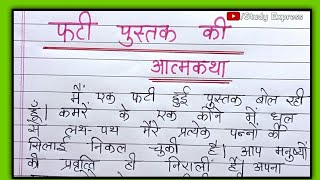 /Study Express
फटी पुस्तक की
आत्मकथा
मैं एक फटी हुई पुस्तक बोल रही
हूँ। कमरें के एक कोने में धूल
से लथ-पथ मेरे प्रत्येक पन्नों की
सिलाई निकल चुकी है। आप मनुष्यों
की प्रवृत्ति ही निराली हैं। अपना